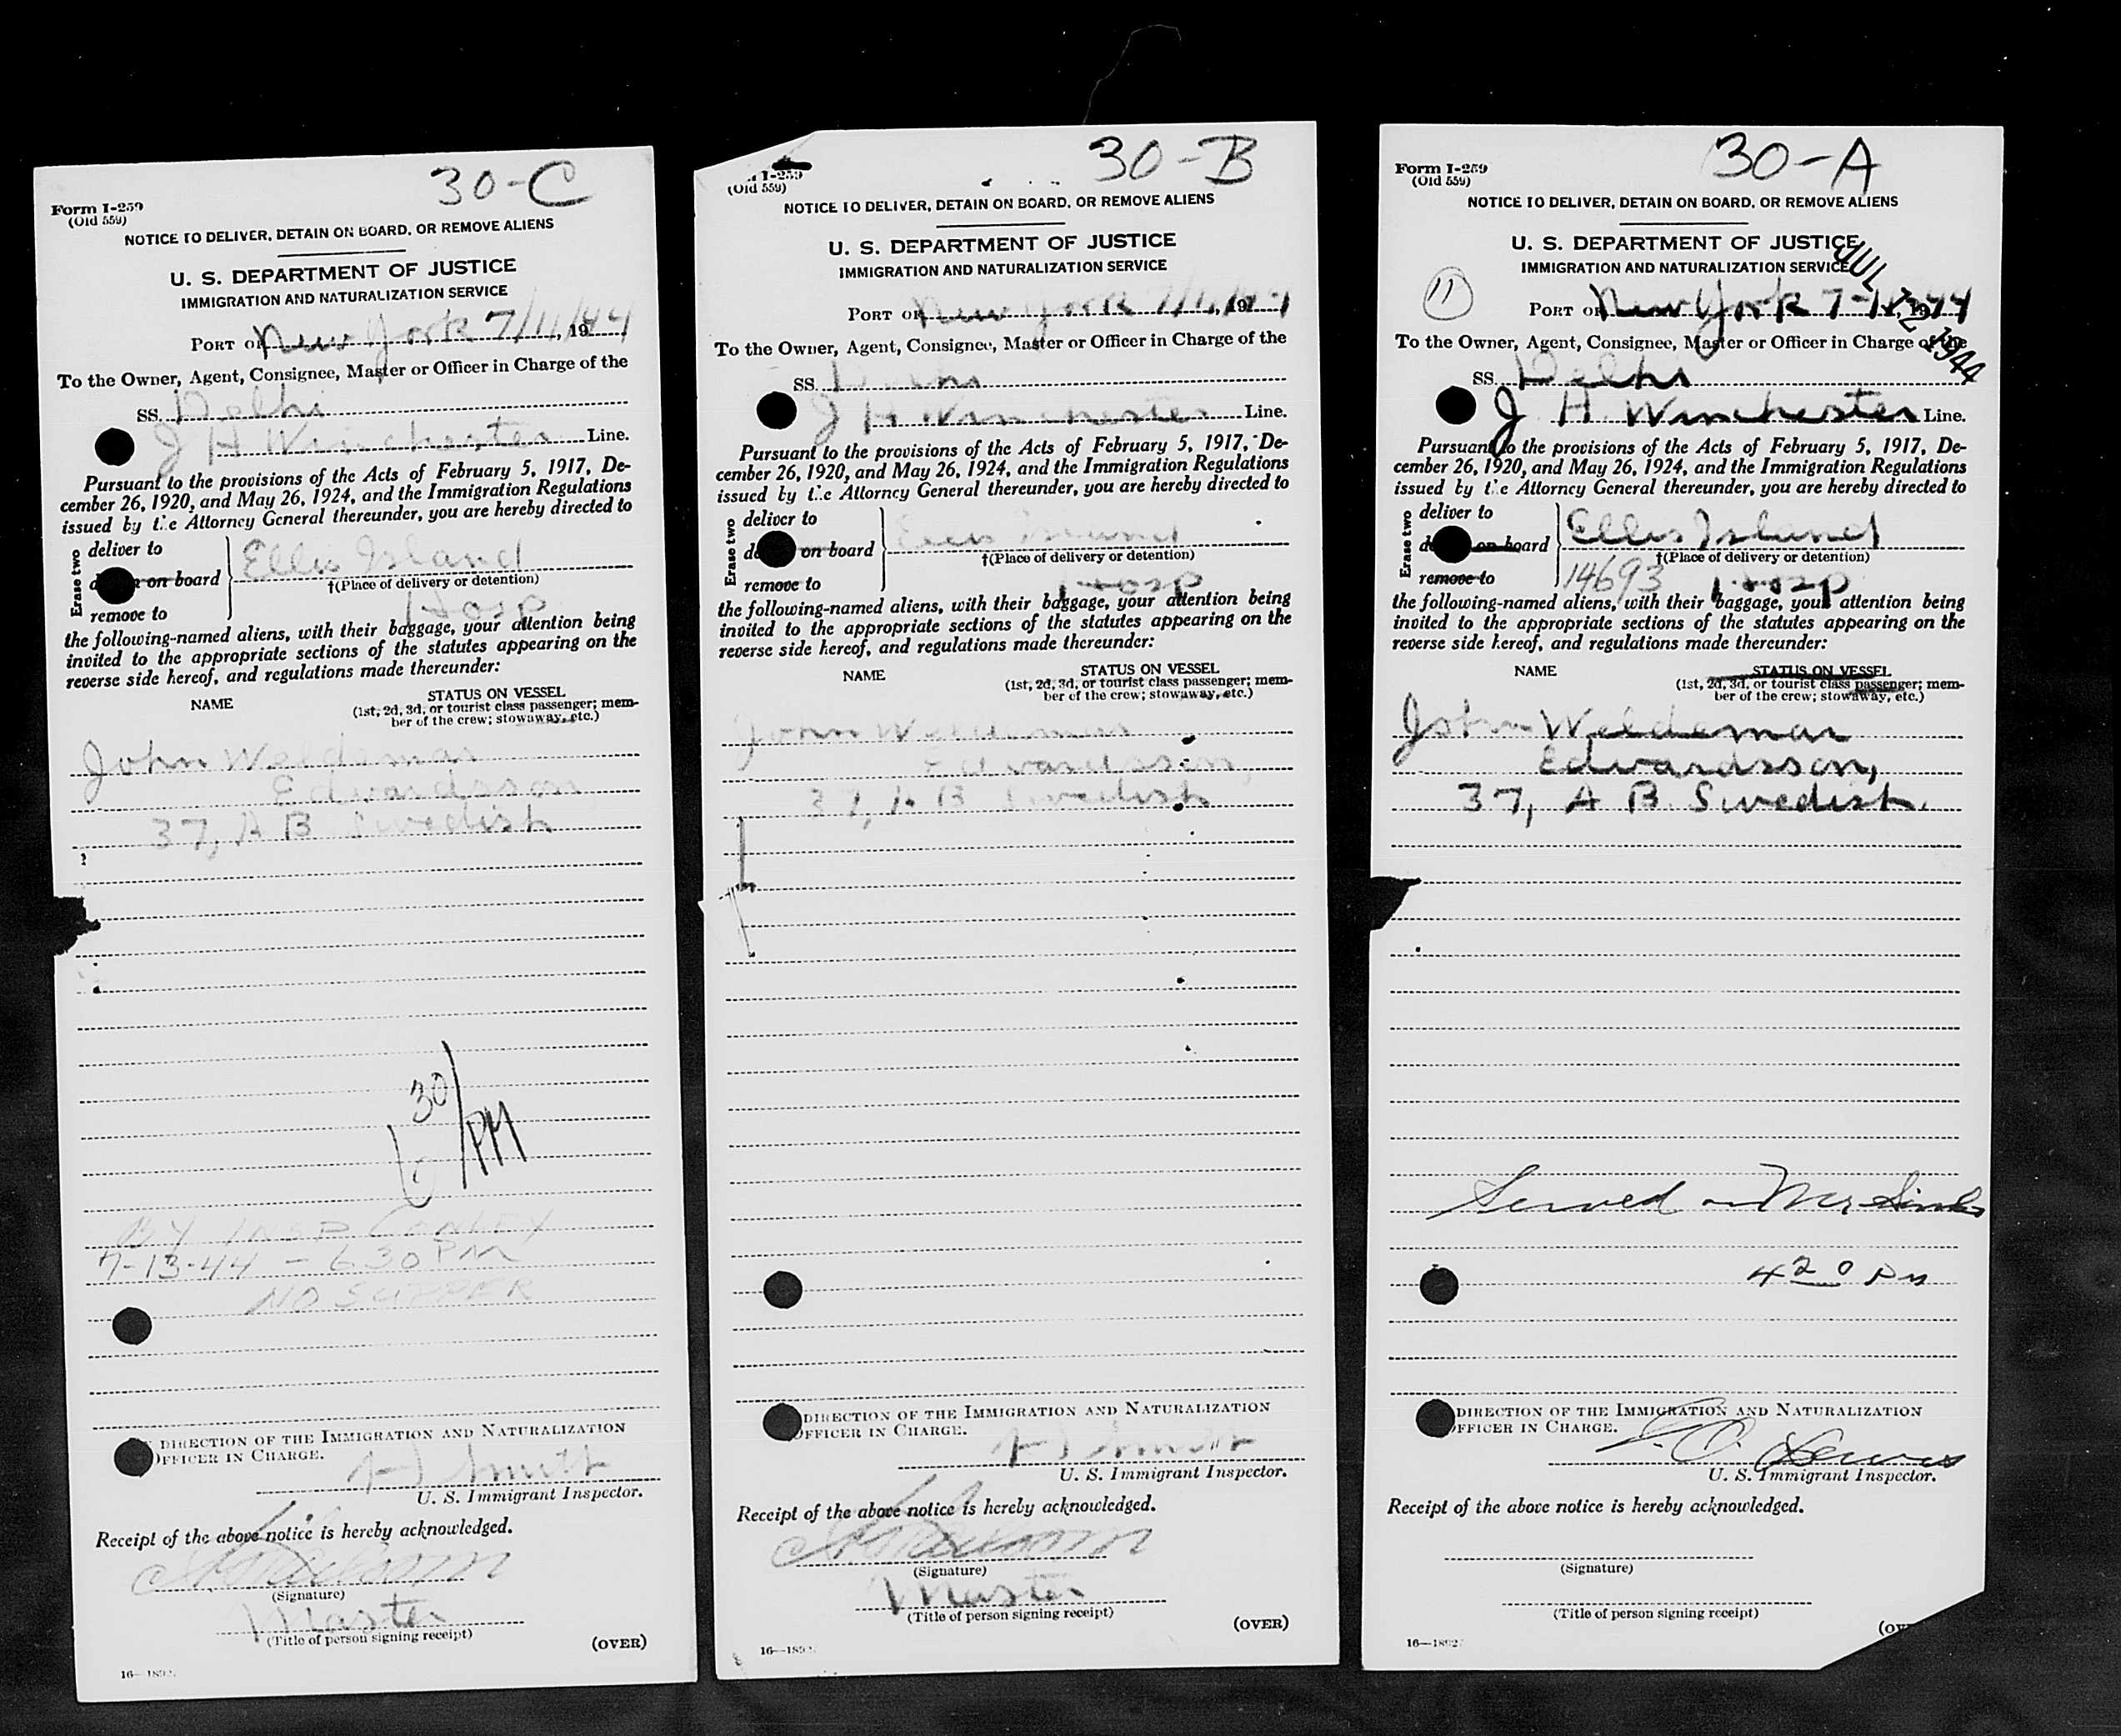 30-C
Form I-259
(Old 559)
NOTICE TO DELIVER, DETAIN ON BOARD, OR REMOVE ALIENS
U. S. DEPARTMENT OF JUSTICE
IMMIGRATION AND NATURALIZATION SERVICE
PORT OF New York 7/11/44, 19
To the Owner, Agent, Consignee, Master or Officer in Charge of the
SS. Delhi
J H Winchester Line.
Pursuant to the provisions of the Acts of February 5, 1917, De-
cember 26, 1920, and May 26, 1924, and the Immigration Regulations
issued by the Attorney General thereunder, you are hereby directed to
Erase two
deliver to
on board
remove to
Ellis Island
†(Place of delivery or detention)
Hosp
the following-named aliens, with their baggage, your attention being
invited to the appropriate sections of the statutes appearing on the
reverse side hereof, and regulations made thereunder:
NAME
STATUS ON VESSEL
(1st, 2d, 3d, or tourist class passenger; mem-
ber of the crew; stowaway, etc.)
John Weldemar
Edwardsson
37, A B Swedish
6 30/PM
BY INSP CONLEY
7-13-44 - 6 30 PM
NO SUPPER
DIRECTION OF THE IMMIGRATION AND NATURALIZATION
OFFICER IN CHARGE.
U. S. Immigrant Inspector.
Receipt of the above notice is hereby acknowledged.
(Signature)
Master
(Title of person signing receipt)
(OVER)
30-B
I-259
(Old 559)
NOTICE TO DELIVER, DETAIN ON BOARD, OR REMOVE ALIENS
U. S. DEPARTMENT OF JUSTICE
IMMIGRATION AND NATURALIZATION SERVICE
PORT OF New York 7/11/44, 19
To the Owner, Agent, Consignee, Master or Officer in Charge of the
SS. Delhi
J H Winchester Line.
Pursuant to the provisions of the Acts of February 5, 1917, De-
cember 26, 1920, and May 26, 1924, and the Immigration Regulations
issued by the Attorney General thereunder, you are hereby directed to
Erase two
deliver to
on board
remove to
Ellis Island
†(Place of delivery or detention)
Hosp
the following-named aliens, with their baggage, your attention being
invited to the appropriate sections of the statutes appearing on the
reverse side hereof, and regulations made thereunder:
NAME
STATUS ON VESSEL
(1st, 2d, 3d, or tourist class passenger; mem-
ber of the crew; stowaway, etc.)
John Weldemar
Edwardsson,
37, A B Swedish
DIRECTION OF THE IMMIGRATION AND NATURALIZATION
OFFICER IN CHARGE.
U. S. Immigrant Inspector.
Receipt of the above notice is hereby acknowledged.
(Signature)
Master
(Title of person signing receipt)
(OVER)
30-A
Form I-259
(Old 559)
NOTICE TO DELIVER, DETAIN ON BOARD, OR REMOVE ALIENS
U. S. DEPARTMENT OF JUSTICE
IMMIGRATION AND NATURALIZATION SERVICE
JUL 12 1944
11
PORT OF New York 7-11-44, 19
To the Owner, Agent, Consignee, Master or Officer in Charge of the
SS. Delhi
J H. Winchester Line.
Pursuant to the provisions of the Acts of February 5, 1917, De-
cember 26, 1920, and May 26, 1924, and the Immigration Regulations
issued by the Attorney General thereunder, you are hereby directed to
Erase two
deliver to
on board
remove to
Ellis Island
†(Place of delivery or detention)
14693 Hosp
the following-named aliens, with their baggage, your attention being
invited to the appropriate sections of the statutes appearing on the
reverse side hereof, and regulations made thereunder:
NAME
STATUS ON VESSEL
(1st, 2d, 3d, or tourist class passenger; mem-
ber of the crew; stowaway, etc.)
John Weldemar
Edwardsson,
37, A B Swedish.
Served on Mr
4 20 PM
DIRECTION OF THE IMMIGRATION AND NATURALIZATION
OFFICER IN CHARGE.
U. S. Immigrant Inspector.
Receipt of the above notice is hereby acknowledged.
(Signature)
(Title of person signing receipt)